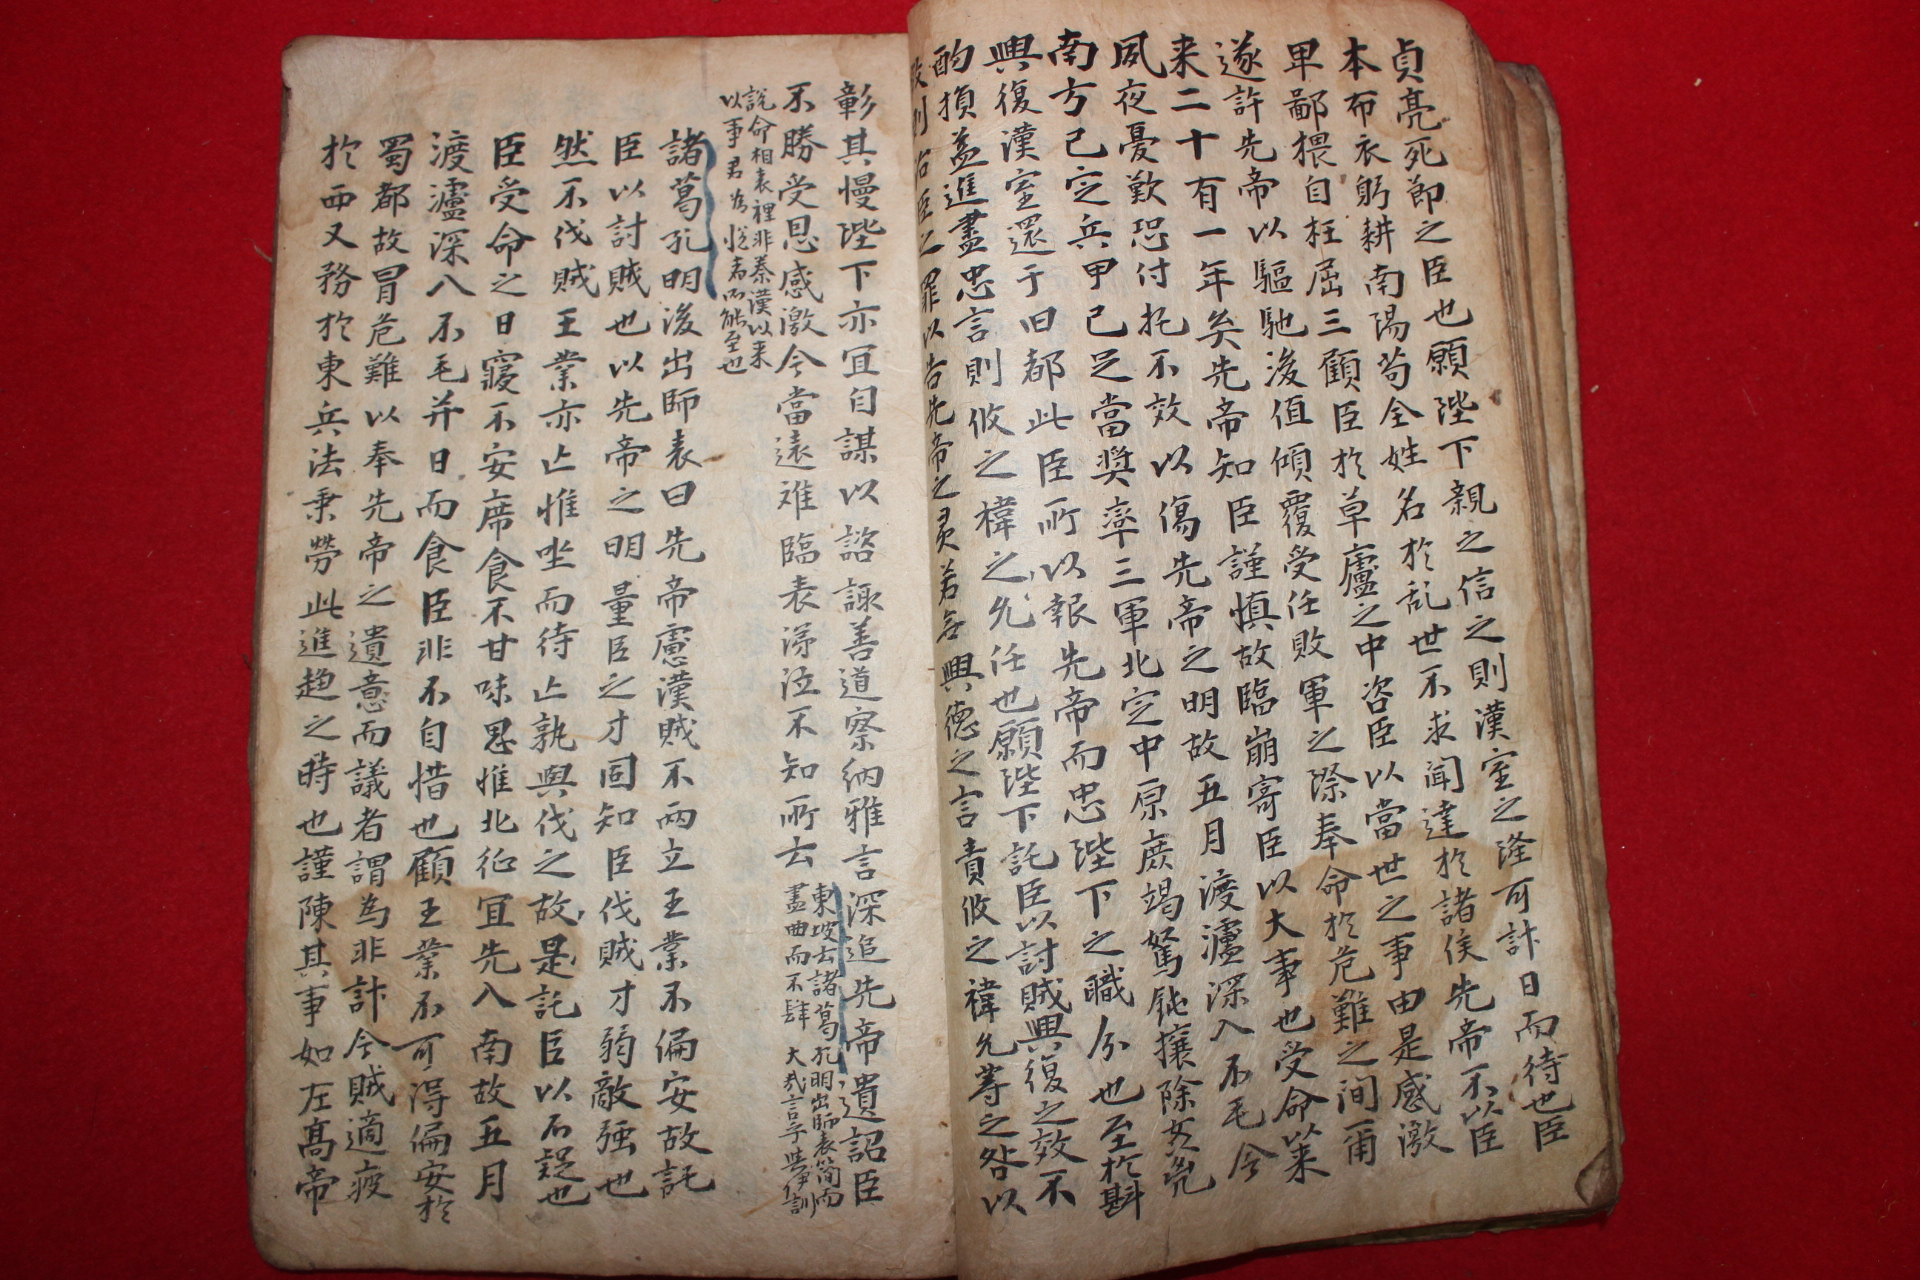 貞亮死節之臣也願陛下親之信之則漢室之隆可計日而待也臣
本布衣躬耕南陽苟全姓名於乱世不求聞達於諸侯先帝不以臣
卑鄙猥自枉屈三顧臣於草廬之中咨臣以當世之事由是感激
遂許先帝以驅馳後值傾覆受任敗軍之際奉命於危難之间甭
来二十有一年矣先帝知臣謹慎故臨崩寄臣以大事也受命以来
夙夜憂歎恐付托不效以傷先帝之明故五月渡瀘深入不毛今
南方已定兵甲已足當奨率三軍北定中原庶竭駑鈍攘除姦兇
興復漢室還于旧都此臣所以報先帝而忠陛下之職分也至於斟
酌損益進盡忠言則攸之褘之允任也願陛下託臣以討賊興復之效不
效則治臣之罪以告先帝之灵若無興德之言責攸之褘允等之咎以
彰其慢陛下亦宜自謀以諮諏善道察納雅言深追先帝遺詔臣
不勝受恩感激今當遠难臨表涕泣不知所去
東坡去諸葛孔明出師表简而
盡曲而不肆大哉言乎與伊訓
說命相表裡非秦漢以来
以事君為悅者而能至也
諸葛孔明後出師表曰先帝慮漢賊不兩立王業不偏安故託
臣以討賊也以先帝之明量臣之才固知臣伐賊才弱敵强也
然不伐賊王業亦亡惟坐而待亡孰與伐之故是託臣以不疑也
臣受命之日寢不安席食不甘味思惟北征宜先入南故五月
渡瀘深入不毛并日而食臣非不自惜也顧王業不可得偏安於
蜀都故冒危難以奉先帝之遺意而議者謂為非計今賊適疲
於西又務於東兵法乗勞此進趋之時也謹陳其事如左高帝